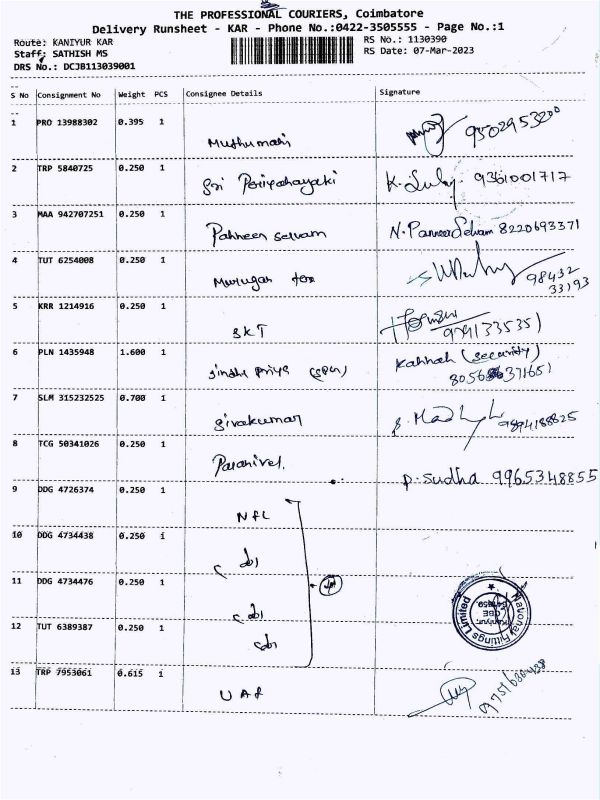 THE PROFESSIONAL COURIERS, Coimbatore
Delivery Runsheet - KAR - Phone No.:0422-3505555 - Page No.:1
Route: KANIYUR KAR
RS No.: 1130390
Staff: SATHISH MS
RS Date: 07-Mar-2023
DRS No.: DCJB113039001
S No Consignment No Weight PCS Consignee Details Signature
1 PRO 13988302 0.395 1 Muthumari 9502953200
2 TRP 5840725 0.250 1 Sri K. 9361001717
3 MAA 942707251 0.250 1 Panneer selvam N. Panneer Selvam 8220693371
4 TUT 6254008 0.250 1 Murugan 98432
33193
5 KRR 1214916 0.250 1 SKT
6 PLN 1435948 1.600 1 Priya Kannan (security)
7 SLM 315232525 0.700 1 Sivakumar 9894188825
8 TCG 50341026 0.250 1 P. Sudha 9965348855
9 DDG 4726374 0.250 1 NFL
10 DDG 4734438 0.250 1
11 DDG 4734476 0.250 1
12 TUT 6389387 0.250 1
National Fittings Limited
Kaniyur,
CBE
13 TRP 7953061 0.615 1